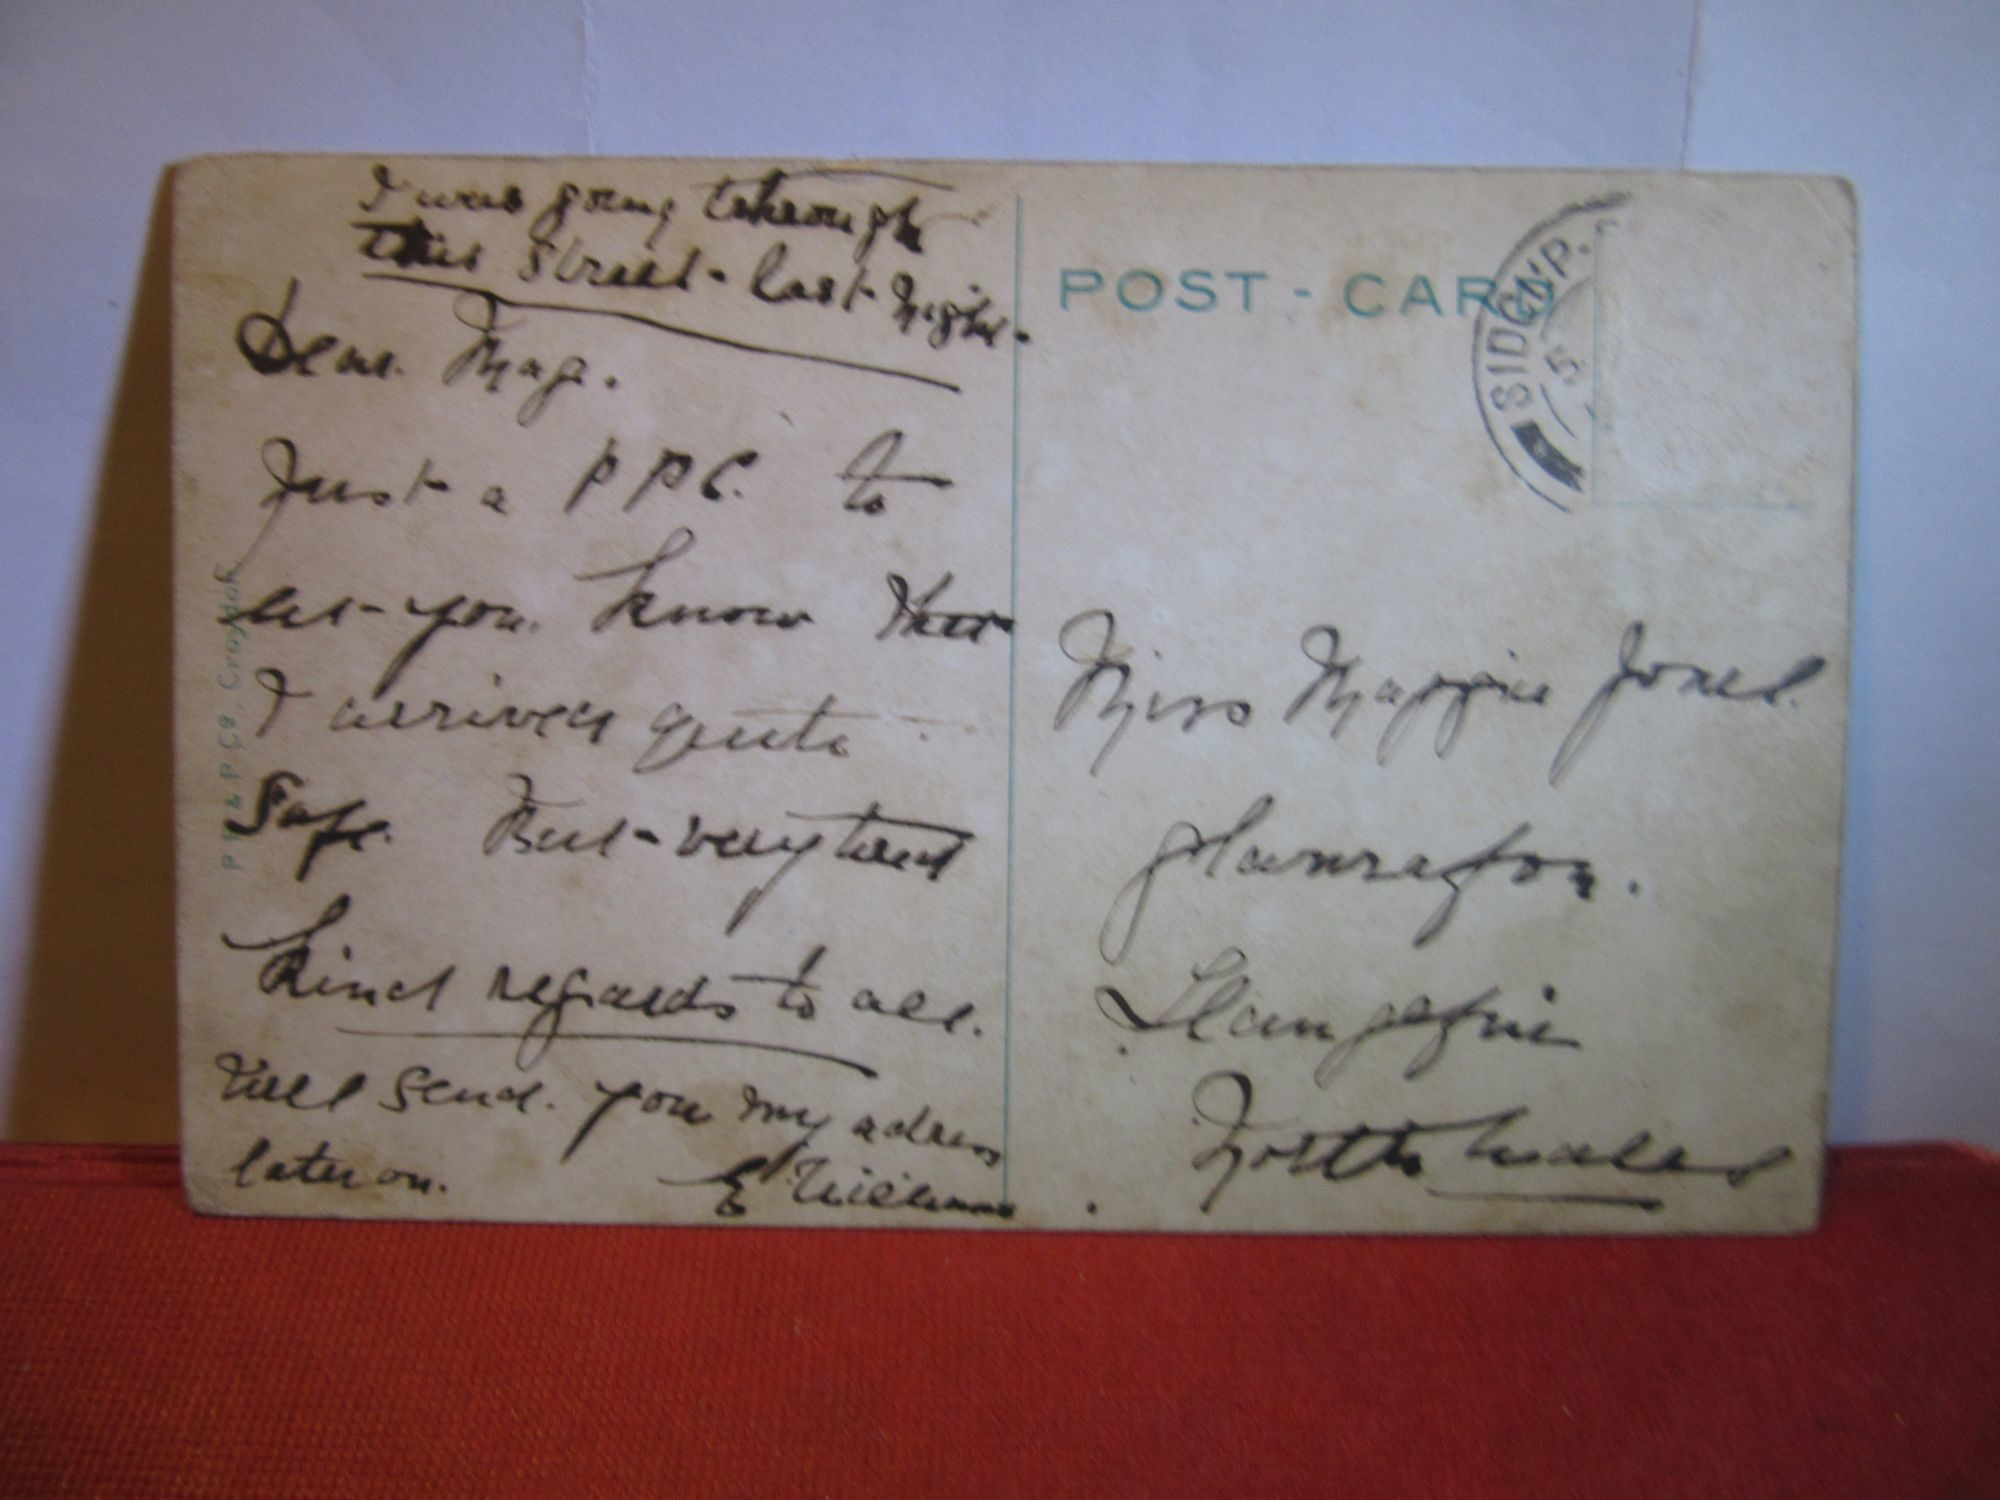 I was going through
this Street - last Night.
Dear Mag.
Just a P P C. to
let you know that
I arrived quite
Safe. But very tired
Kind regards to all.
Will send you my adress
later on. E Williams
P P & P Co. Croydon
POST - CARD
SIDCUP.
5
Miss Maggie Jones.
glanrafon.
Llangefni
North Wales